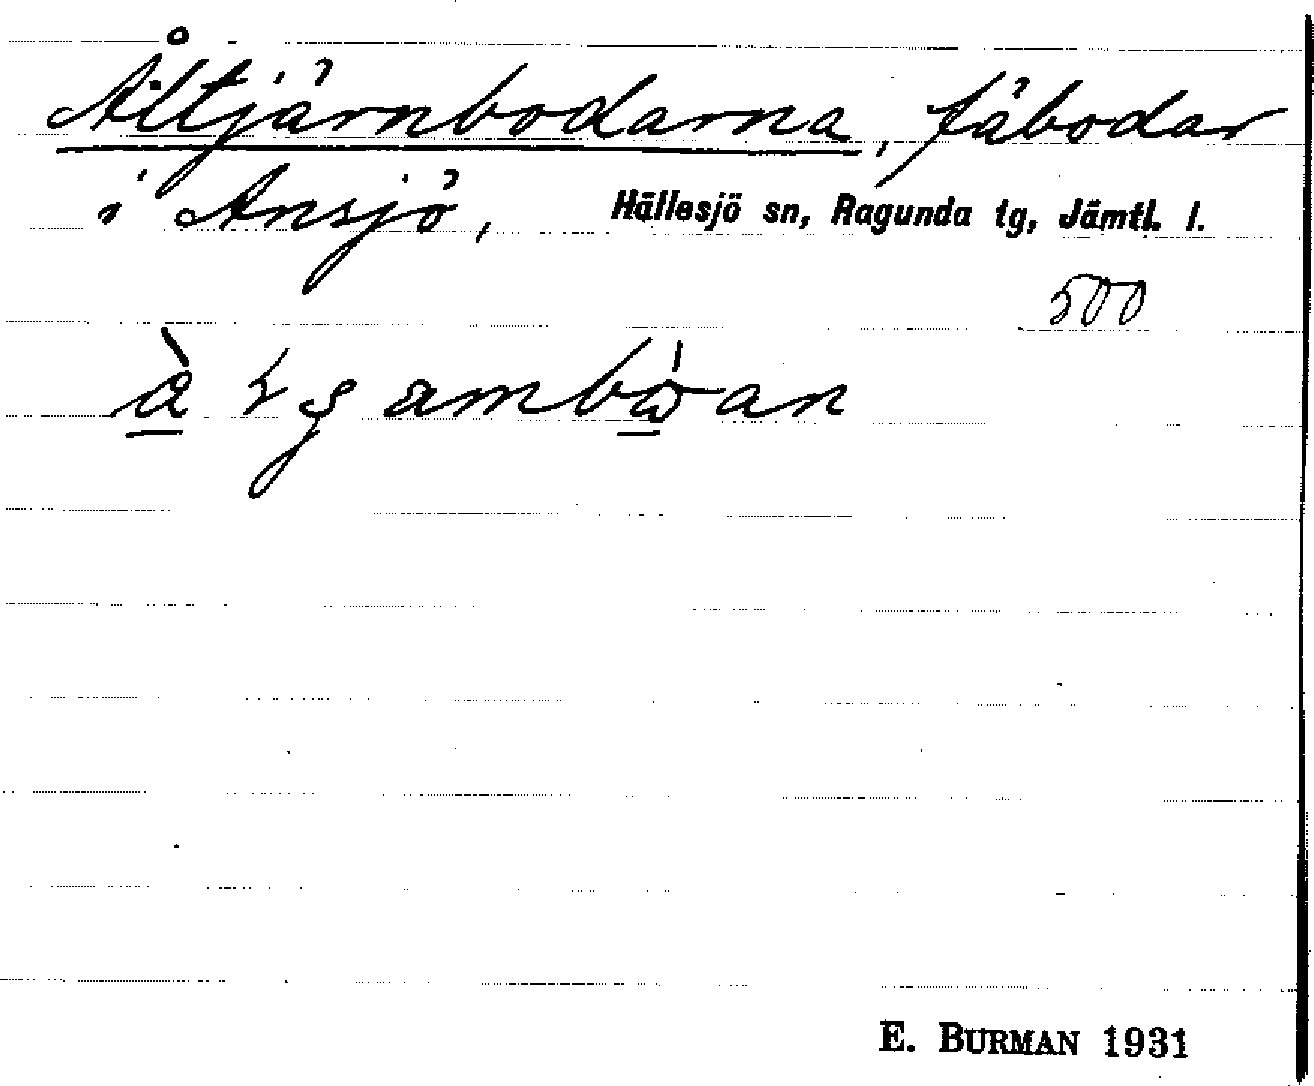 Åltjärnbodarna, fäbodar
i Ansjö, Hällesjö sn, Ragunda tg, Jämtl. l.
500
E. BURMAN 1931